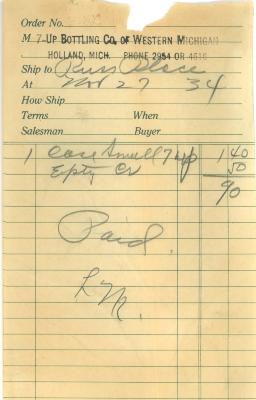 Order No.
M 7-Up Bottling Co. of Western Michigan
HOLLAND, MICH. PHONE 2954 OR 4616
Ship to Russ Place
At Nov 27 34
How Ship
Terms When
Salesman Buyer
1 Case Small 7 up 1 40
Epty Cr 50
90
Paid.
L M.